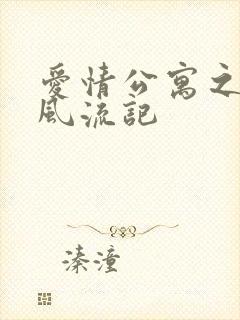 愛情公寓之
風流記
溱潼